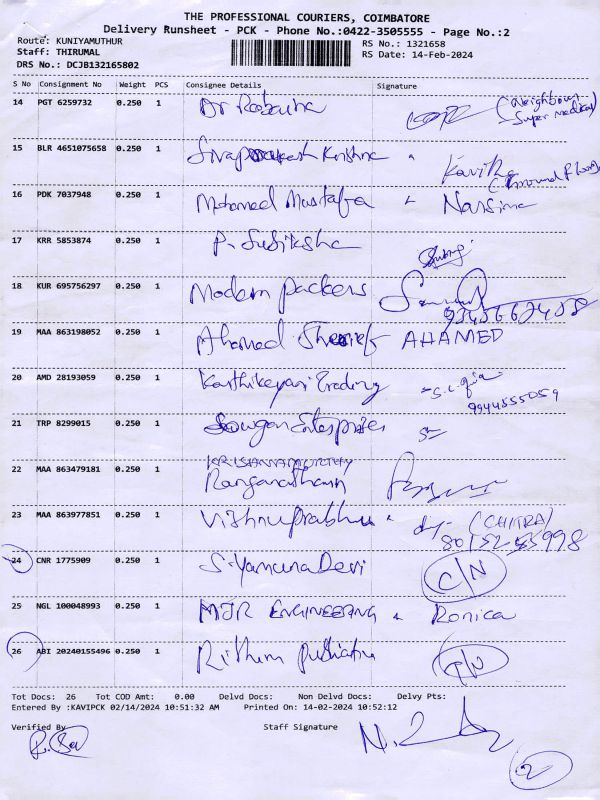 THE PROFESSIONAL COURIERS, COIMBATORE
Delivery Runsheet - PCK - Phone No.:0422-3505555 - Page No.:2
Route: KUNIYAMUTHUR
Staff: THIRUMAL RS No.: 1321658
DRS No.: DCJB132165802 RS Date: 14-Feb-2024
S No Consignment No Weight PCS Consignee Details Signature
14 PGT 6259732 0.250 1 Dr (Neighbour Super medical)
15 BLR 4651075658 0.250 1 Krishna Kavitha (Ground Floor)
16 PDK 7037948 0.250 1 Mohamed Mustafa Narsima
17 KRR 5853874 0.250 1 P. Sudiksha
18 KUR 695756297 0.250 1 Modern packers
19 MAA 863198052 0.250 1 Ahamed Sherief AHAMED
20 AMD 28193059 0.250 1 Karthikeyan Trading 9944555059
21 TRP 8299015 0.250 1 Enterprises
22 MAA 863479181 0.250 1 KRISHNAMORTHY
Ranganathan
23 MAA 863977851 0.250 1 Vishnuprabhu (CHITRA)
24 CNR 1775909 0.250 1 S. Yamuna Devi C/N
25 NGL 100048993 0.250 1 MJR ENGINEERING Ronica
26 ABI 20240155496 0.250 1
Tot Docs: 26 Tot COD Amt: 0.00 Delvd Docs: Non Delvd Docs: Delvy Pts:
Entered By :KAVIPCK 02/14/2024 10:51:32 AM Printed On: 14-02-2024 10:52:12
Verified By Staff Signature
2